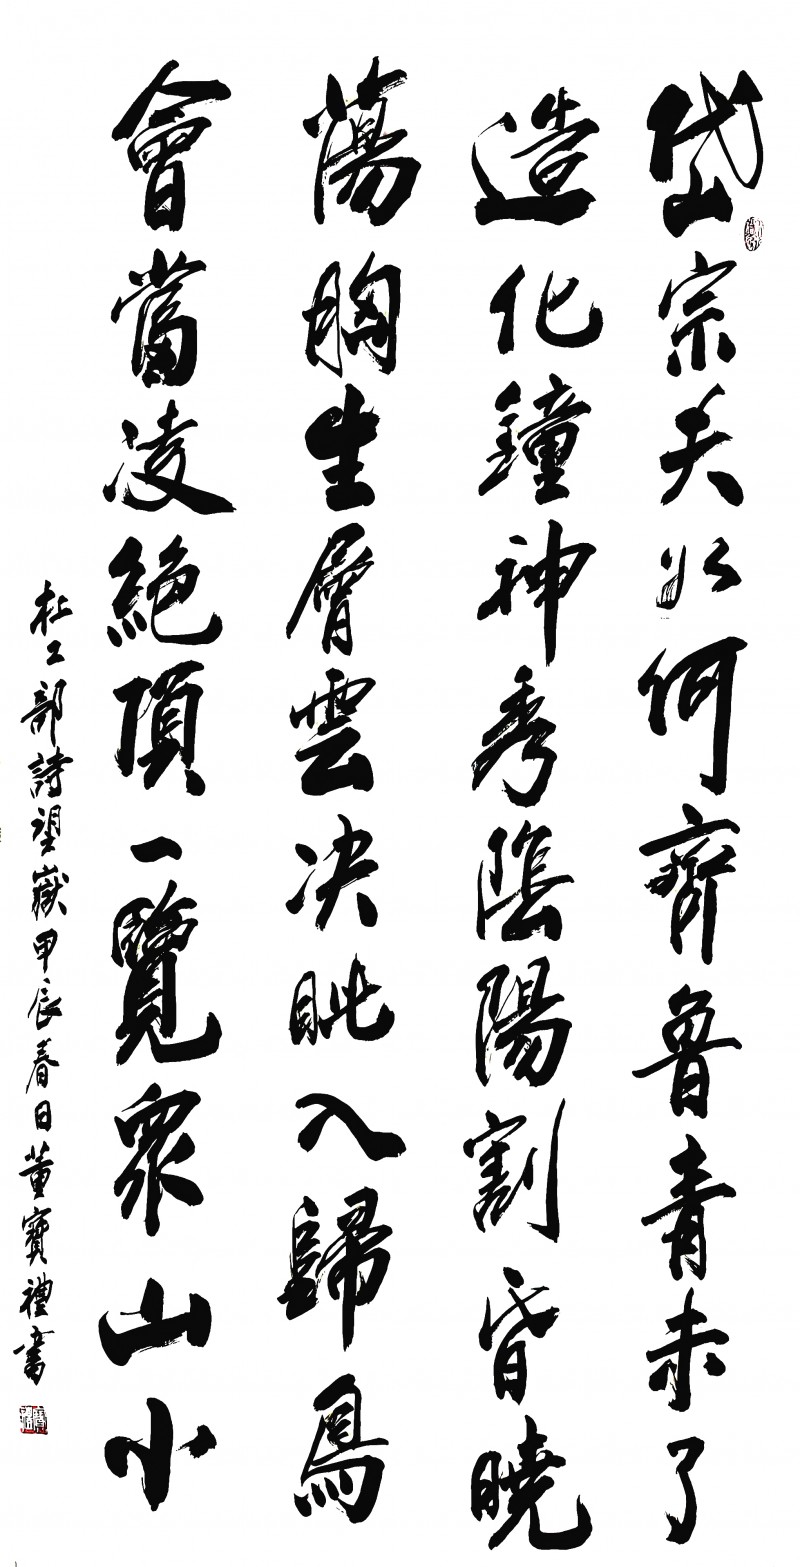 岱宗夫如何齊魯青未了
造化鐘神秀陰陽割昏曉
蕩胸生層雲決眦入歸鳥
會當凌絕頂一覽眾山小
杜工部詩望嶽甲辰春日董寶禮書